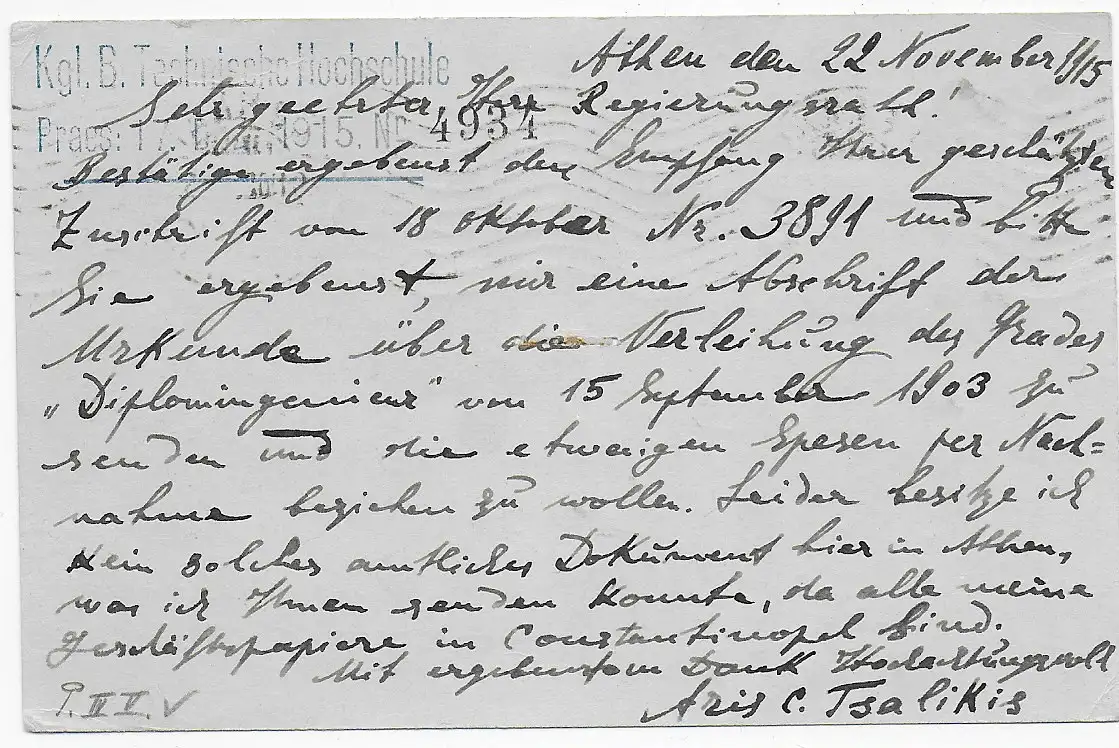 Kgl. B. Technische Hochschule
Praes: 17. 1915. Nr 4934
Athen den 22 November 1915
Sehr geehrter Herr Regierungsrath!
Bestätige ergebenst den Empfang Ihrer geschätzten
Zuschrift vom 18 Oktober Nr. 3891 und bitte
Sie ergebenst, mir eine Abschrift der
Urkunde über die Verleihung des Grades
"Diplomingenieur" vom 15 September 1903 zu
senden und die etwaigen Spesen per Nach=
nahme beziehen zu wollen. Leider besitze ich
kein solches amtliches Dokument hier in Athen,
was ich Ihnen senden konnte, da alle meine
Geschäftspapiere in Constantinopel sind.
Mit ergebenstem Dank Hochachtungsvoll
Aris C. Tsalikis